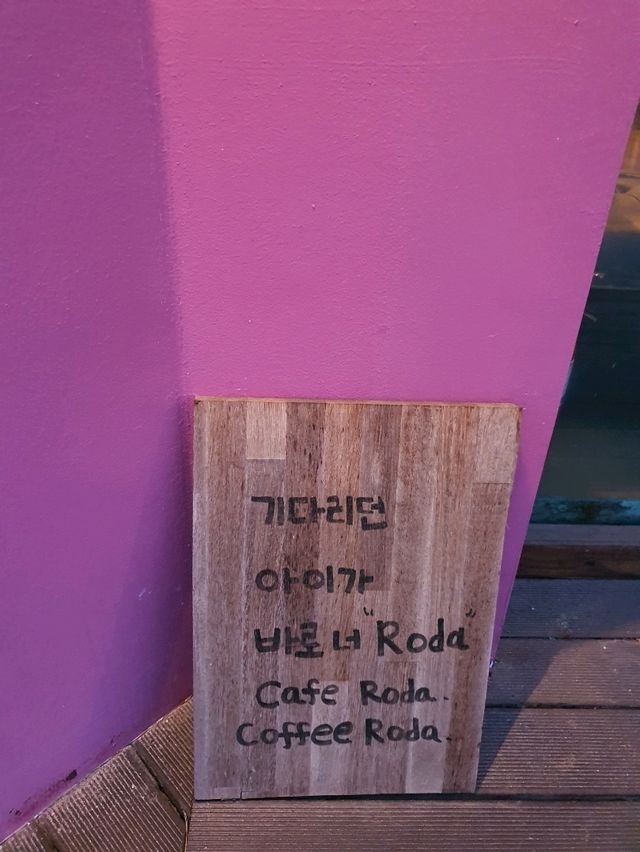 기다리던
아이가
바로 너 "Roda"
Cafe Roda.
Coffee Roda.